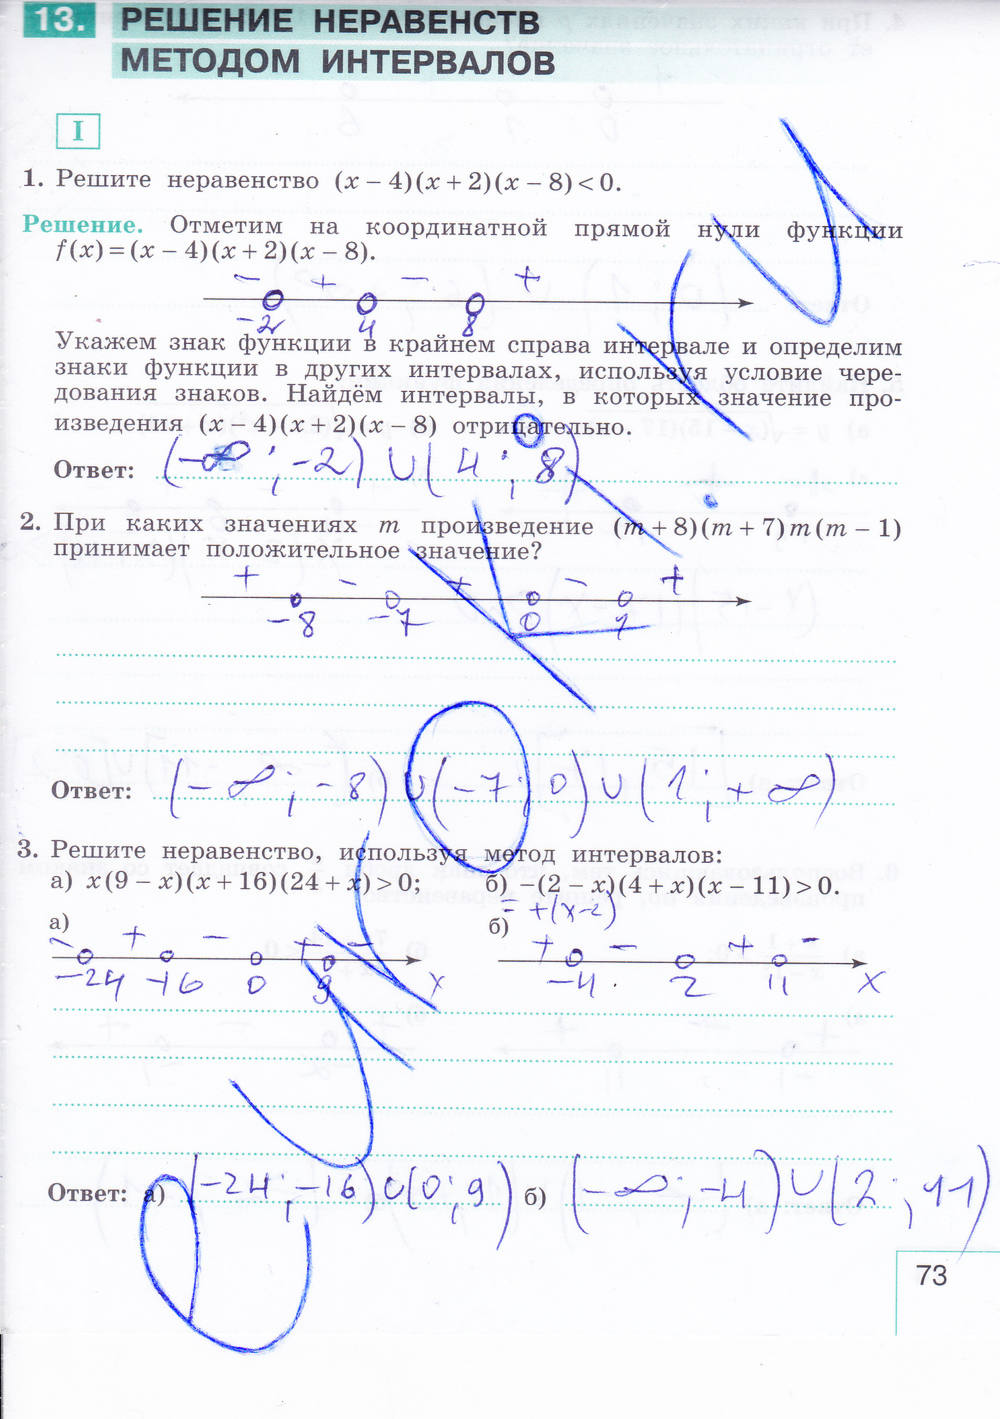 13. РЕШЕНИЕ НЕРАВЕНСТВ
МЕТОДОМ ИНТЕРВАЛОВ
I
1. Решите неравенство (x − 4)(x + 2)(x − 8) < 0.
Решение. Отметим на координатной прямой нули функции
f(x) = (x − 4)(x + 2)(x − 8).
− + − +
−2 4 8
Укажем знак функции в крайнем справа интервале и определим
знаки функции в других интервалах, используя условие чере-
дования знаков. Найдём интервалы, в которых значение про-
изведения (x − 4)(x + 2)(x − 8) отрицательно.
Ответ: (−∞; −2) ∪ (4; 8)
2. При каких значениях m произведение (m + 8)(m + 7)m(m − 1)
принимает положительное значение?
+ − + − +
−8 −7 0 1
Ответ: (−∞; −8) ∪ (−7; 0) ∪ (1; +∞)
3. Решите неравенство, используя метод интервалов:
а) x(9 − x)(x + 16)(24 + x) > 0; б) −(2 − x)(4 + x)(x − 11) > 0.
= +(x−2)
а) б)
− + − + − + − + −
−24 −16 0 9 x −4 2 11 x
Ответ: а) (−24; −16) ∪ (0; 9) б) (−∞; −4) ∪ (2; 11)
73